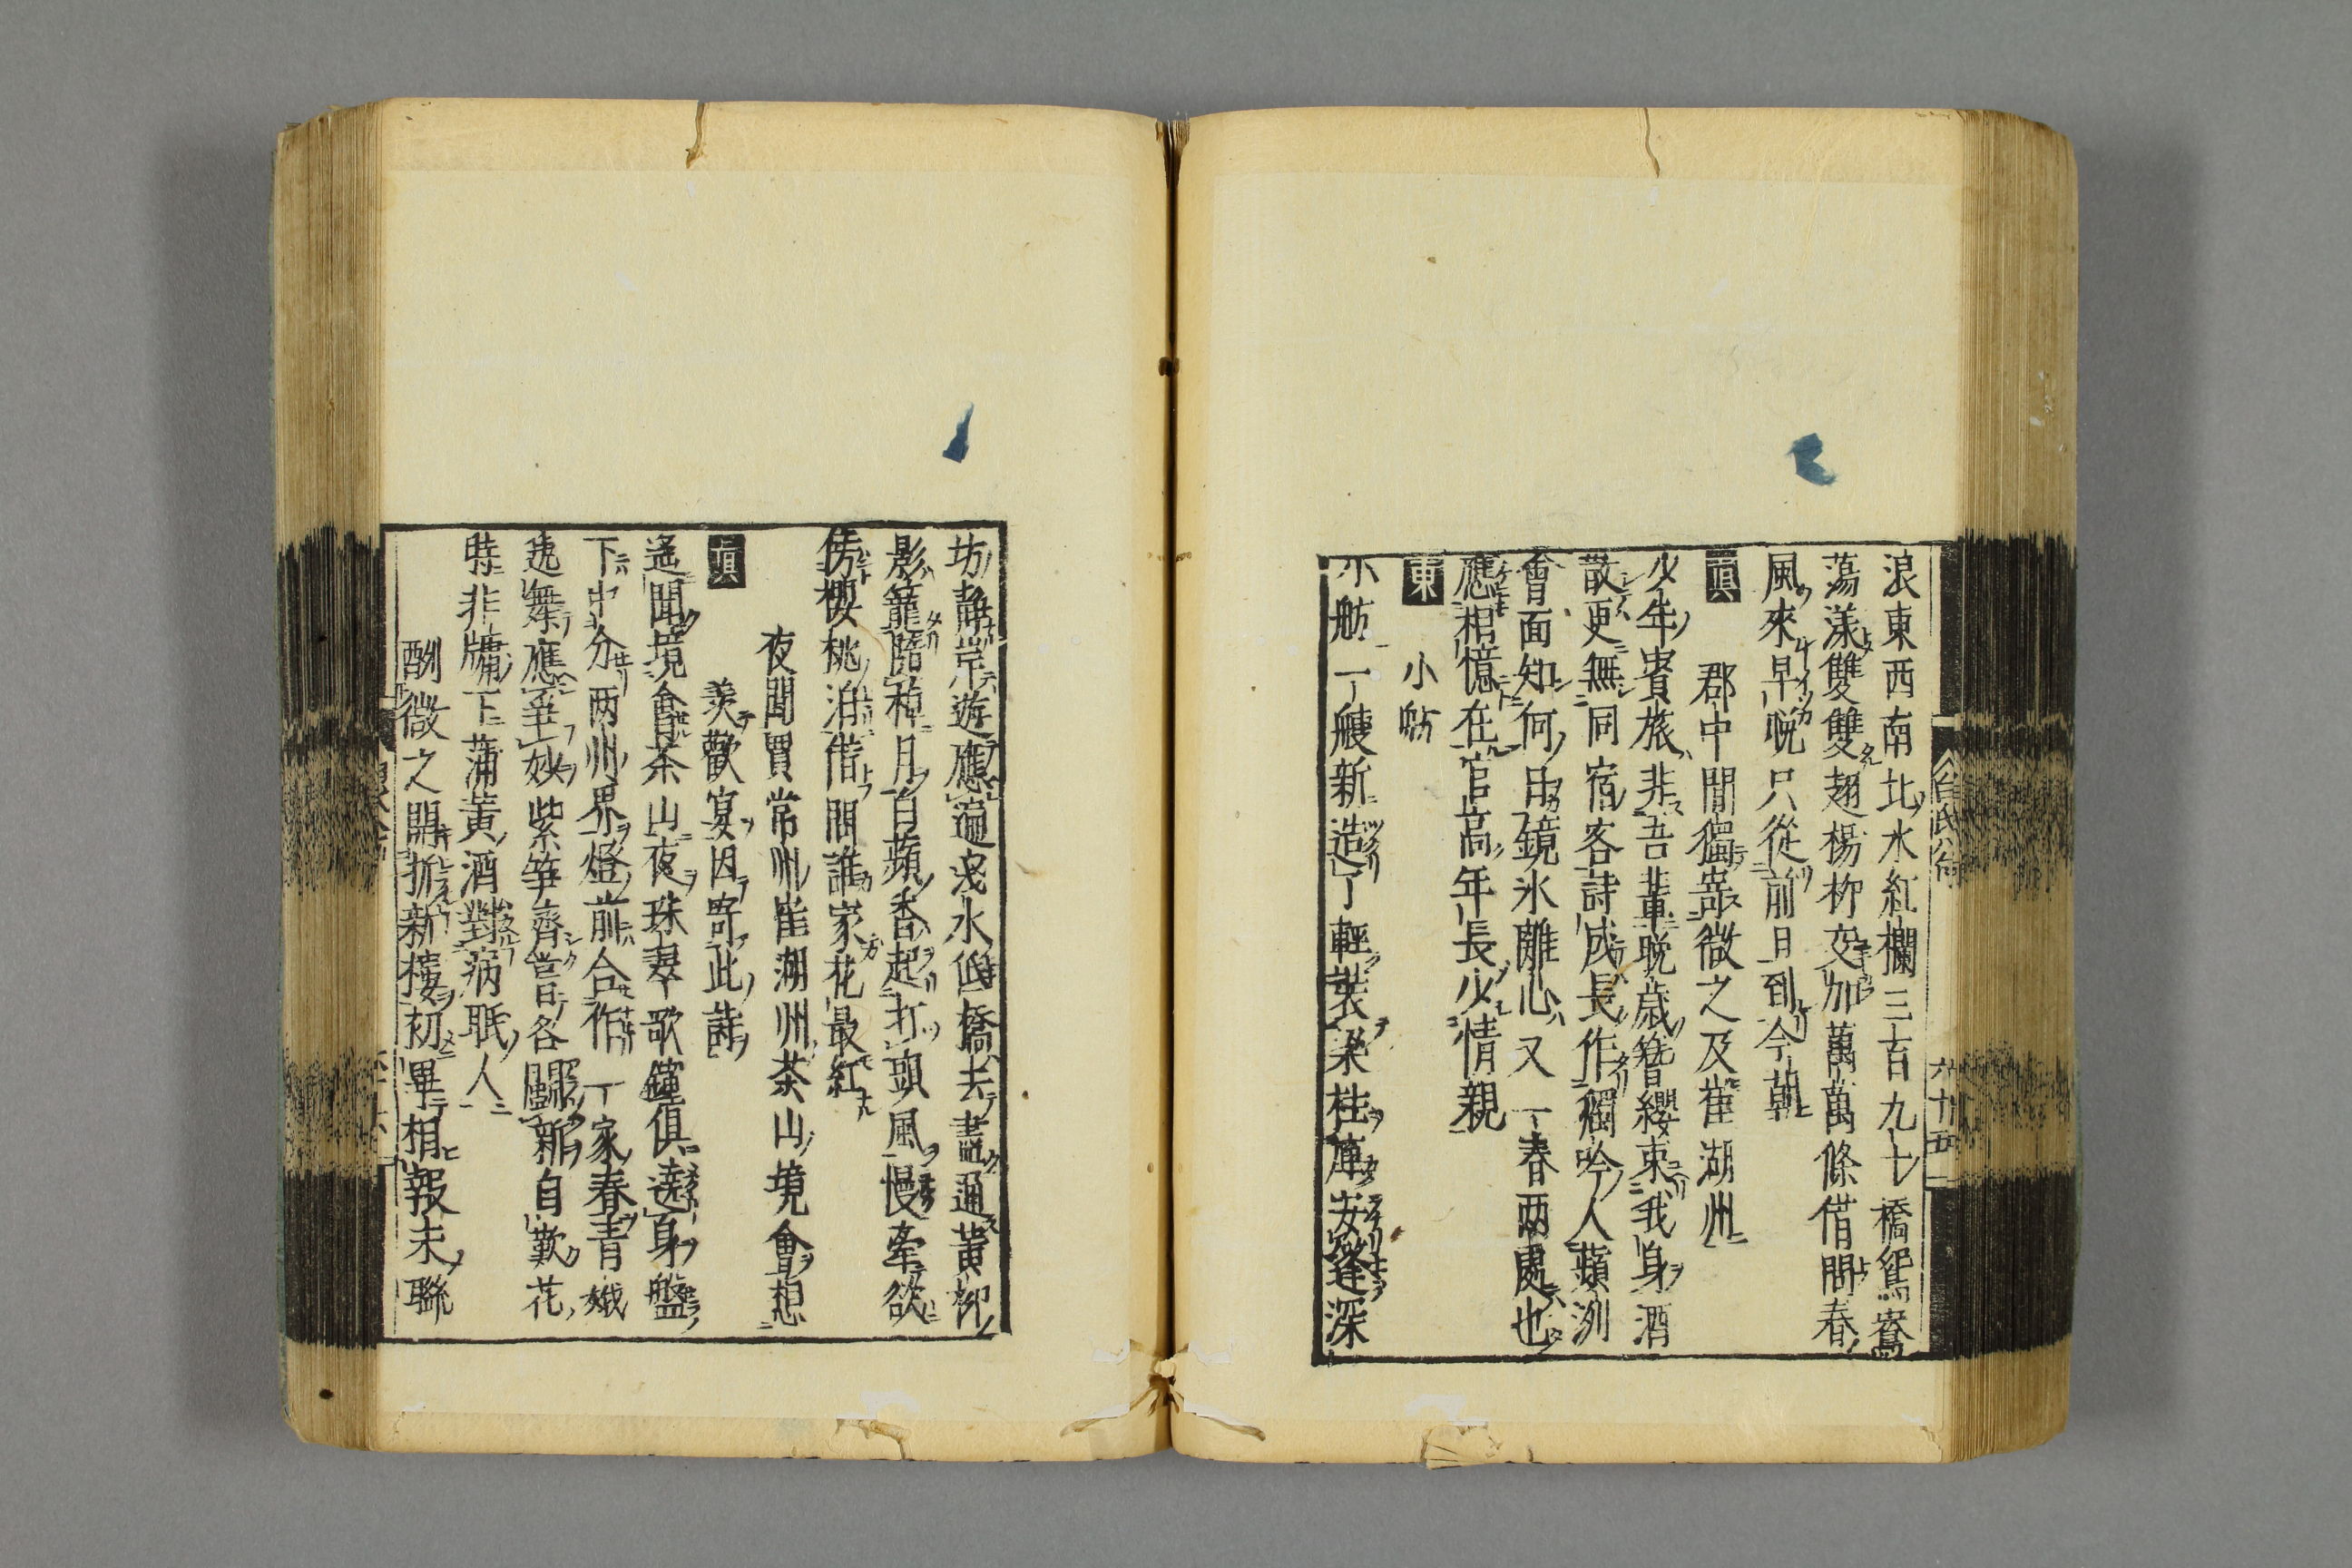 浪東西南北水紅欄三百九十橋鴛鴦
蕩漾雙雙翅楊柳交加萬萬條借問春
風來早晚只從前日到今朝
眞 郡中閒獨寄微之及崔湖州
少年賓旅非吾輩晩歳簪纓束我身酒
散更無同宿客詩成長作獨吟人蘋洲
會面知何日鏡水離心又一春兩處也
應相憶在官高年長少情親
東 小舫
小舫一艘新造了輕裝梁柱庳安篷深
坊靜岸遊應遍淺水低橋去盡通黃柳
影籠隨棹月白蘋香起打頭風慢牽欲
傍櫻桃泊借問誰家花最紅
夜聞賈常州崔湖州茶山境會想
眞 羨歡宴因寄此詩
遙聞境會茶山夜珠翠歌鐘俱遶身盤
下中分兩州界燈前合作一家春青娥
遞舞應爭妙紫笋齊嘗各鬪新自歎花
時非牗下蒲黃酒對病眠人
酬微之開拆新樓初畢相報末聯
六十五